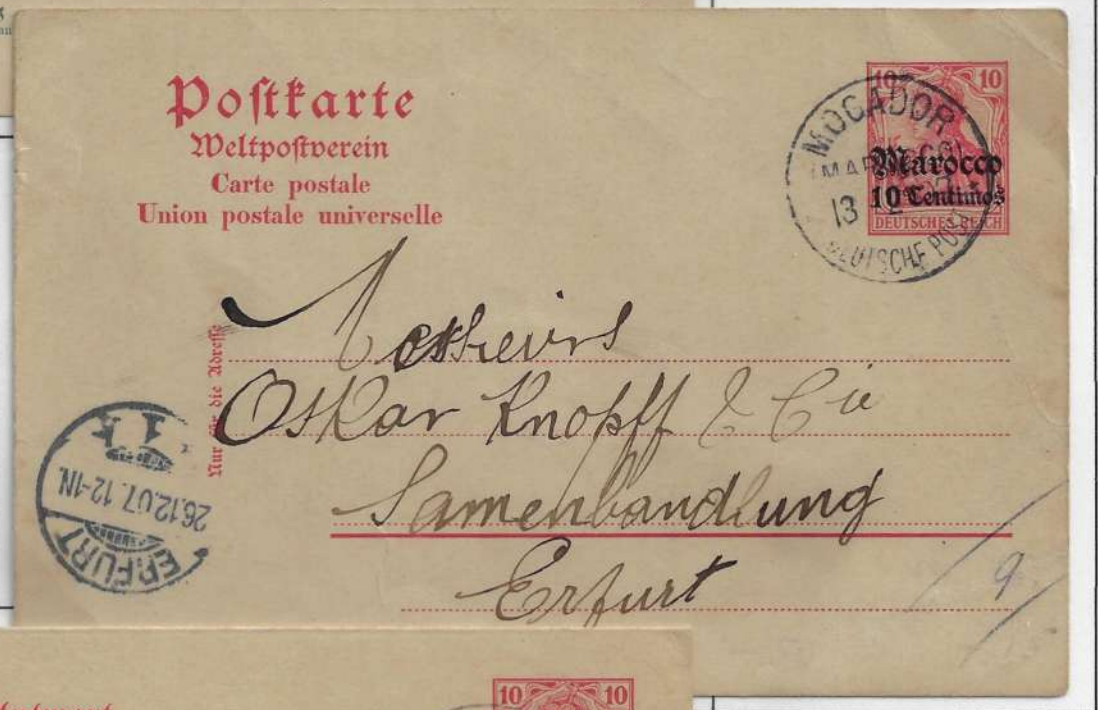 Postkarte
Weltpostverein
Carte postale
Union postale universelle
10 10
Marocco
10 Centimos
DEUTSCHES REICH
MOGADOR
13
DEUTSCHE POST
Nur für die Adresse
Messieurs
Oskar Knopff & Cie
Samenhandlung
Erfurt
ERFURT
26.12.07. 12-1N.
1
9
10 10